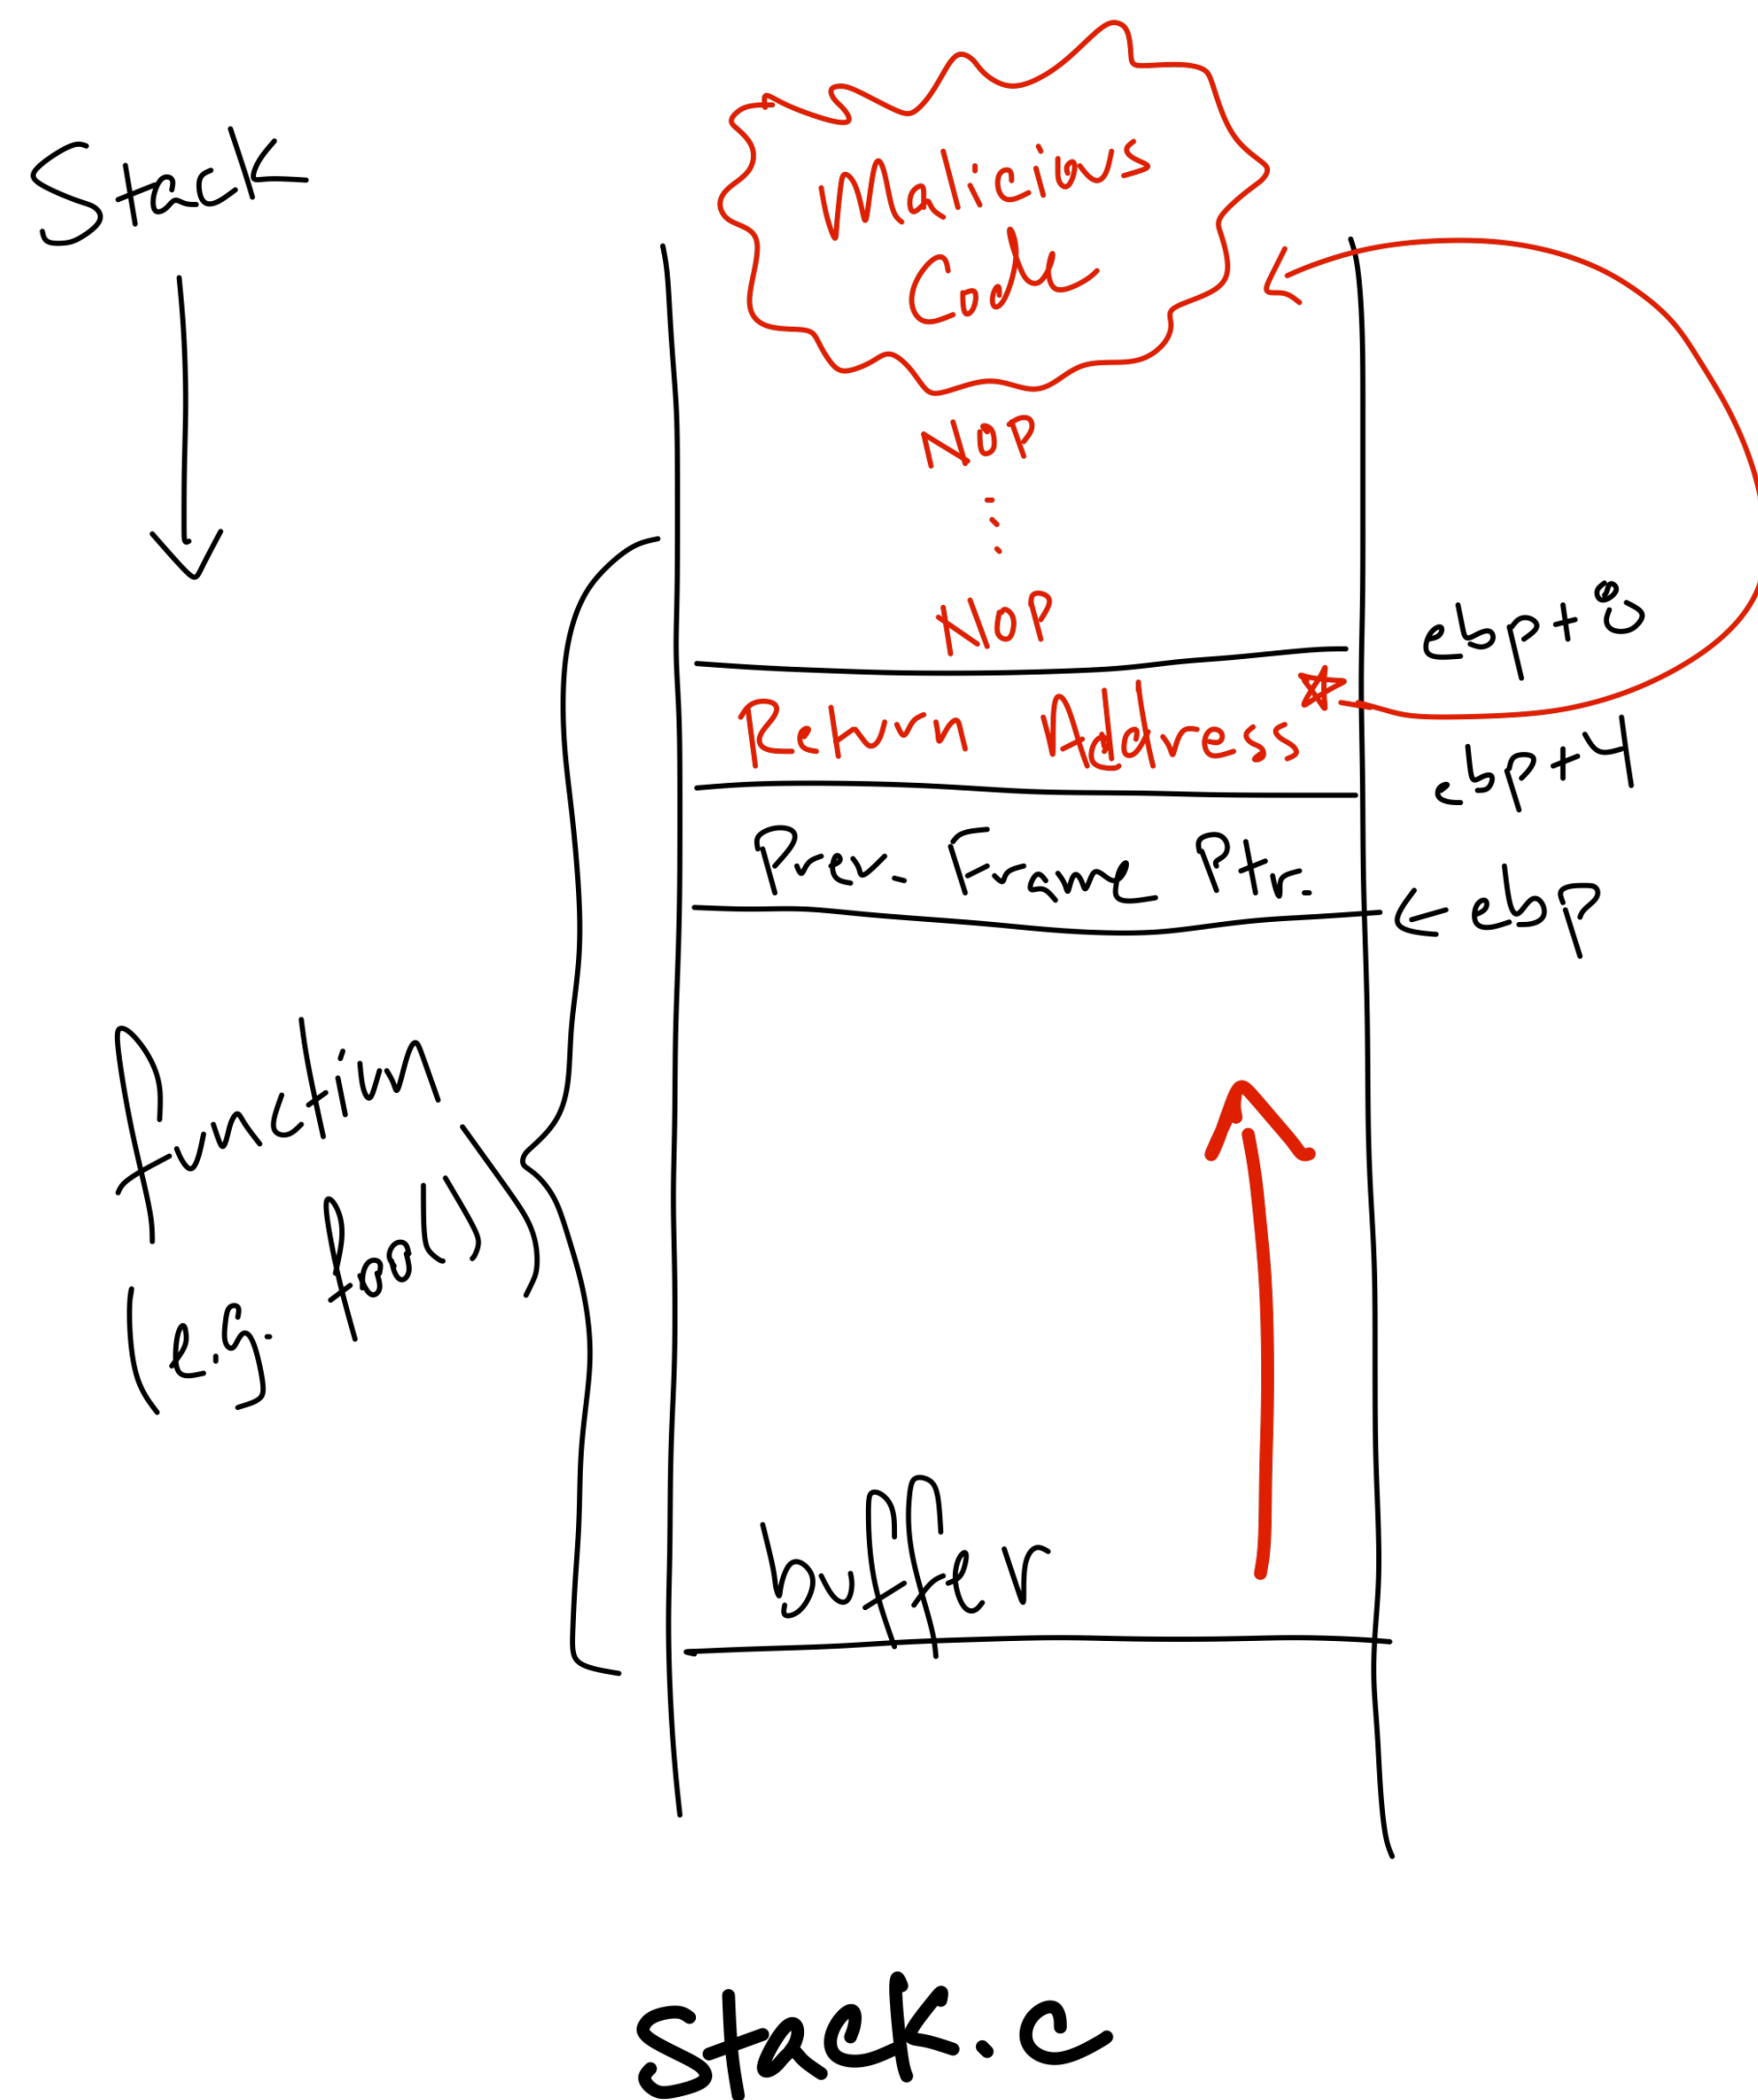 Stack
Malicious
Code
NOP
⋮
NOP
ebp+8
Return Address *
ebp+4
Prev. Frame Ptr.
← ebp
function
(e.g. foo())
buffer
stack.c